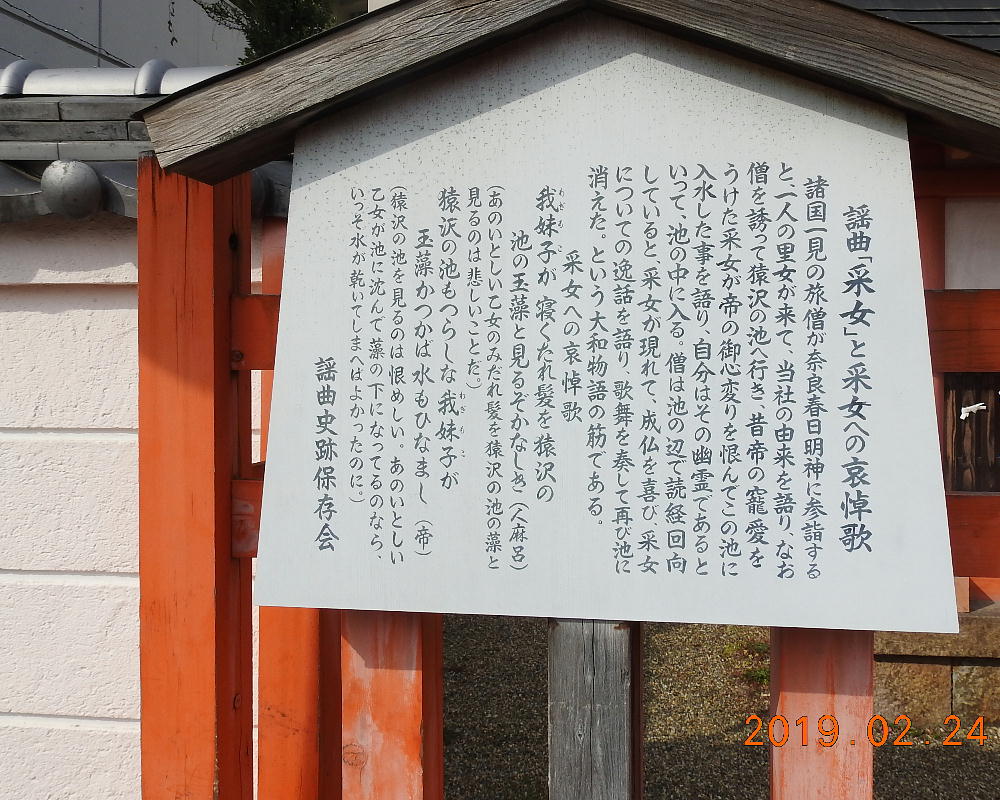 謡曲「采女」と采女への哀悼歌
諸国一見の旅僧が奈良春日明神に参詣する
と、一人の里女が来て、当社の由来を語り、なお
僧を誘って猿沢の池へ行き、昔帝の寵愛を
うけた采女が帝の御心変りを恨んでこの池に
入水した事を語り、自分はその幽霊であると
いって、池の中に入る。僧は池の辺で読経回向
していると、采女が現れて、成仏を喜び、采女
についての逸話を語り、歌舞を奏して再び池に
消えた。という大和物語の筋である。
采女への哀悼歌
我妹子が 寝くたれ髪を猿沢の
わぎもこ
池の玉藻と見るぞかなしき(人麻呂)
(あのいとしい乙女のみだれ髪を猿沢の池の藻と
見るのは悲しいことだ。)
猿沢の池もつらしな我妹子が
わぎもこ
玉藻かつかば水もひなまし(帝)
(猿沢の池を見るのは恨めしい。あのいとしい
乙女が池に沈んで藻の下になってるのなら、
いっそ水が乾いてしまへばよかったのに。)
謡曲史跡保存会
2019.02.24